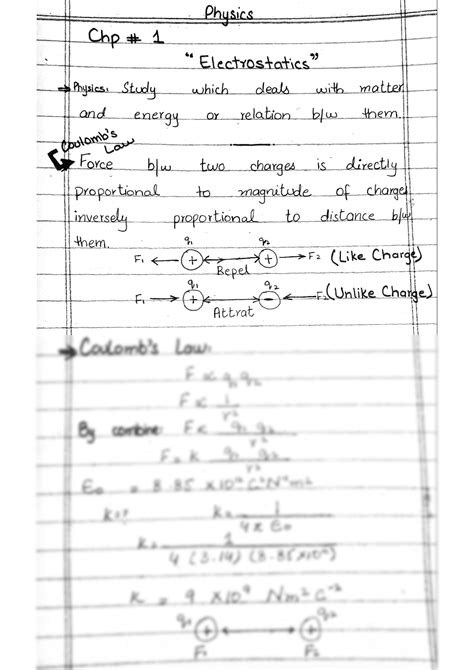 Physics
Chp # 1
"Electrostatics"
→ Physics: Study which deals with matter
and energy or relation b/w them.
Coulomb's
Law
Force b/w two charges is directly
proportional to magnitude of charge
inversely proportional to distance b/w
them.
q₁ q₂
F₁ ← (+) ↔ (+) → F₂ (Like Charge)
Repel
q₁ q₂
F₁ → (+) ↔ (-) ← F₂ (Unlike Charge)
Attrat
→ Coulomb's Law:
F ∝ q₁ q₂
F ∝ 1/r²
By combine: F ∝ q₁ q₂/r²
F = k q₁ q₂/r²
= 8.85 ×10
k=? k = 1/4π ε₀
k = 1/4 (3.14) (8.85×10
k = 9 ×10⁹ Nm² C⁻²
q₁ q₂
(+) ↔ (+)
F₁ F₂